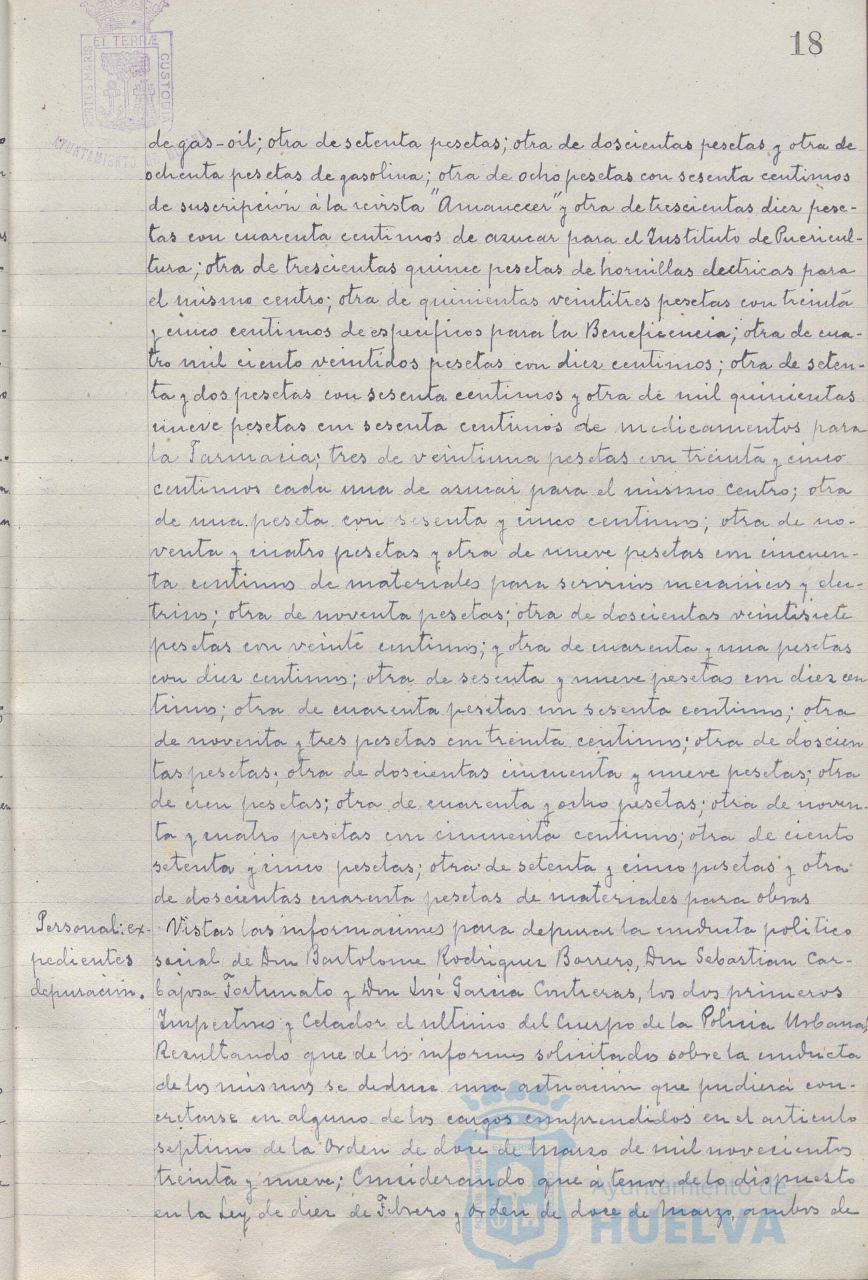 18
PORTUS MARIS
ET TERRÆ
CUSTODIA
AYUNTAMIENTO
de gas-oil; otra de setenta pesetas; otra de doscientas pesetas y otra de
ochenta pesetas de gasolina; otra de ocho pesetas con sesenta centimos
de suscripción á la revista "Amanecer" y otra de trescientas diez pese-
tas con cuarenta centimos de azucar para el Instituto de Puericul-
tura; otra de trescientas quince pesetas de hornillas electricas para
el mismo centro; otra de quinientas veintitres pesetas con treinta
y cinco centimos de especificos para la Beneficencia; otra de cua-
tro mil ciento veintidos pesetas con diez centimos; otra de seten-
ta y dos pesetas con sesenta centimos y otra de mil quinientas
nueve pesetas con sesenta centimos de medicamentos para
la Farmacia; tres de veintiuna pesetas con treinta y cinco
centimos cada una de azucar para el mismo centro; otra
de una peseta con sesenta y cinco centimos; otra de no-
venta y cuatro pesetas y otra de nueve pesetas con cincuen-
ta centimos de materiales para servicios mecanicos y elec-
tricos; otra de noventa pesetas; otra de doscientas veintisiete
pesetas con veinte centimos; y otra de cuarenta y una pesetas
con diez centimos; otra de sesenta y nueve pesetas con diez cen
timos; otra de cuarenta pesetas con sesenta centimos; otra
de noventa y tres pesetas con treinta centimos; otra de doscien
tas pesetas; otra de doscientas cincuenta y nueve pesetas; otra
de cien pesetas; otra de cuarenta y ocho pesetas; otra de noven-
ta y cuatro pesetas con cincuenta centimos; otra de ciento
setenta y cinco pesetas; otra de setenta y cinco pesetas y otra
de doscientas cuarenta pesetas de materiales para obras
Personal: ex-
pedientes
depuración.
Vistas las informaciones para depurar la conducta politico
social de Don Bartolome Rodriguez Borrero, Don Sebastian Car-
bajosa Fortunato y Don José Garcia Contreras, los dos primeros
Inspectores y Celador el ultimo del Cuerpo de la Policia Urbana;
Resultando que de los informes solicitados sobre la conducta
de los mismos se deduce una actuación que pudiera con-
cretarse en alguno de los cargos comprendidos en el articulo
septimo de la Orden de doce de Marzo de mil novecientos
treinta y nueve; Considerando que á tenor de lo dispuesto
en la Ley de diez de Febrero y Orden de doce de Marzo, ambos de
Ayuntamiento de
HUELVA